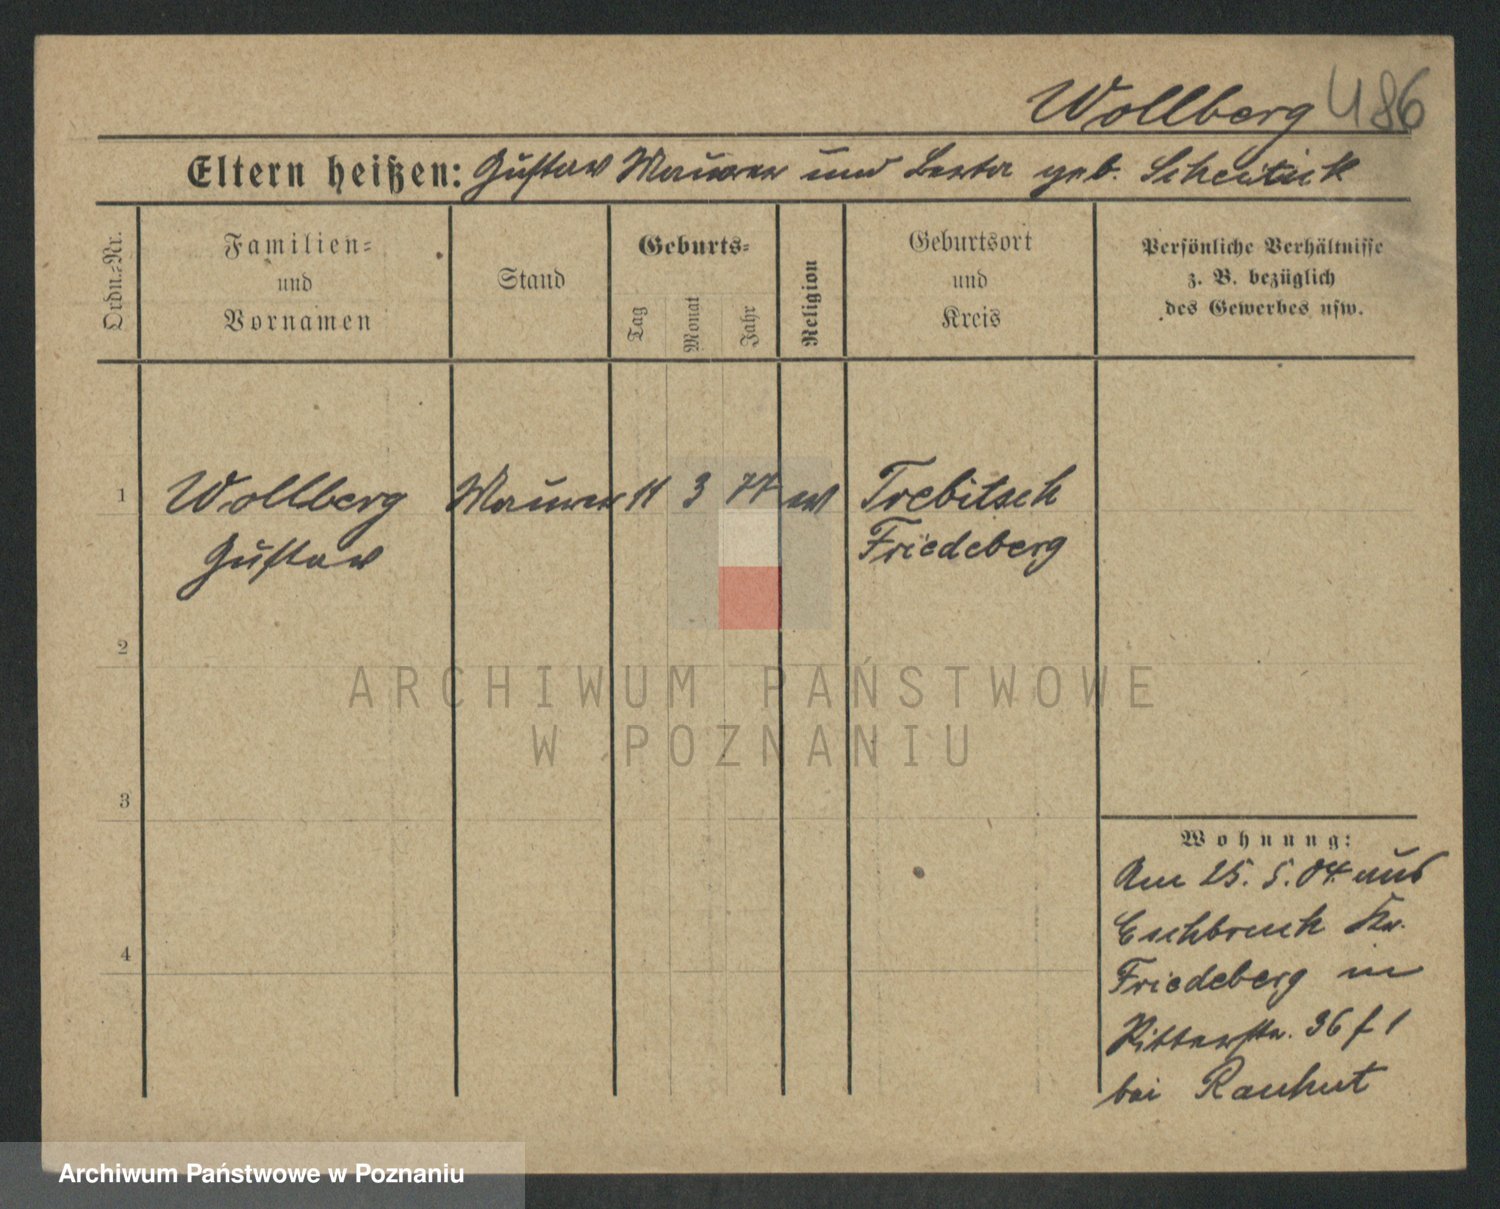 Wollberg 486
Eltern heißen: Gustav Maurer und Berta geb.
Ordn.-Nr.
Familien-
und
Vornamen
Stand
Geburts-
Tag
Monat
Jahr
Religion
Geburtsort
und
Kreis
Persönliche Verhältnisse
z. B. bezüglich
des Gewerbes usw.
1 Wollberg Maurer 11 3 77 ev Trebitsch
Gustav Friedeberg
2
ARCHIWUM PAŃSTWOWE
W POZNANIU
3
4
Wohnung:
Am 25. 5. 04 aus
Eschbruch Kr.
Friedeberg in
Ritterstr. 36 f 1
bei Rauhut
Archiwum Państwowe w Poznaniu